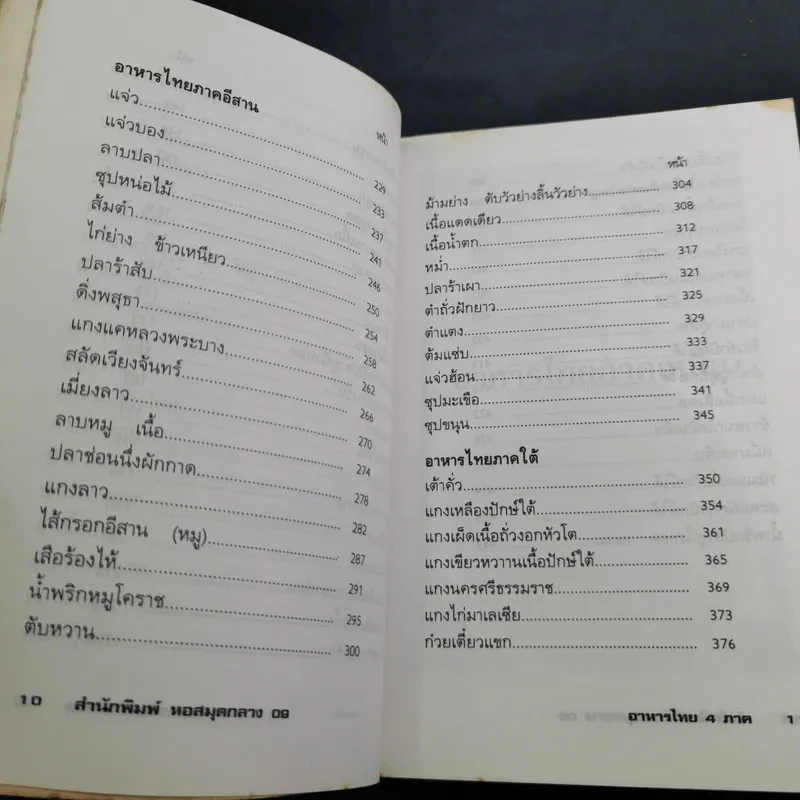 อาหารไทยภาคอีสาน
หน้า
แจ่ว 229
แจ่วบอง 233
ลาบปลา 237
ซุปหน่อไม้ 241
ส้มตำ 246
ไก่ย่าง ข้าวเหนียว 250
ปลาร้าสับ 254
ดิ่งพสุธา 258
แกงแคหลวงพระบาง 262
สลัดเวียงจันทร์ 266
เมี่ยงลาว 270
ลาบหมู เนื้อ 274
ปลาช่อนนึ่งผักกาด 278
แกงลาว 282
ไส้กรอกอีสาน (หมู) 287
เสือร้องไห้ 291
น้ำพริกหมูโคราช 295
ตับหวาน 300
10 สำนักพิมพ์ หอสมุดกลาง 09
หน้า
ม้ามย่าง ตับวัวย่างลิ้นวัวย่าง 304
เนื้อแดดเดียว 308
เนื้อน้ำตก 312
หม่ำ 317
ปลาร้าเผา 321
ตำถั่วฝักยาว 325
ตำแตง 329
ต้มแซ่บ 333
แจ่วฮ้อน 337
ซุปมะเขือ 341
ซุปขนุน 345
อาหารไทยภาคใต้
เต้าคั่ว 350
แกงเหลืองปักษ์ใต้ 354
แกงเผ็ดเนื้อถั่วงอกหัวโต 361
แกงเขียวหวานเนื้อปักษ์ใต้ 365
แกงนครศรีธรรมราช 369
แกงไก่มาเลเซีย 373
ก๋วยเตี๋ยวแขก 376
อาหารไทย 4 ภาค